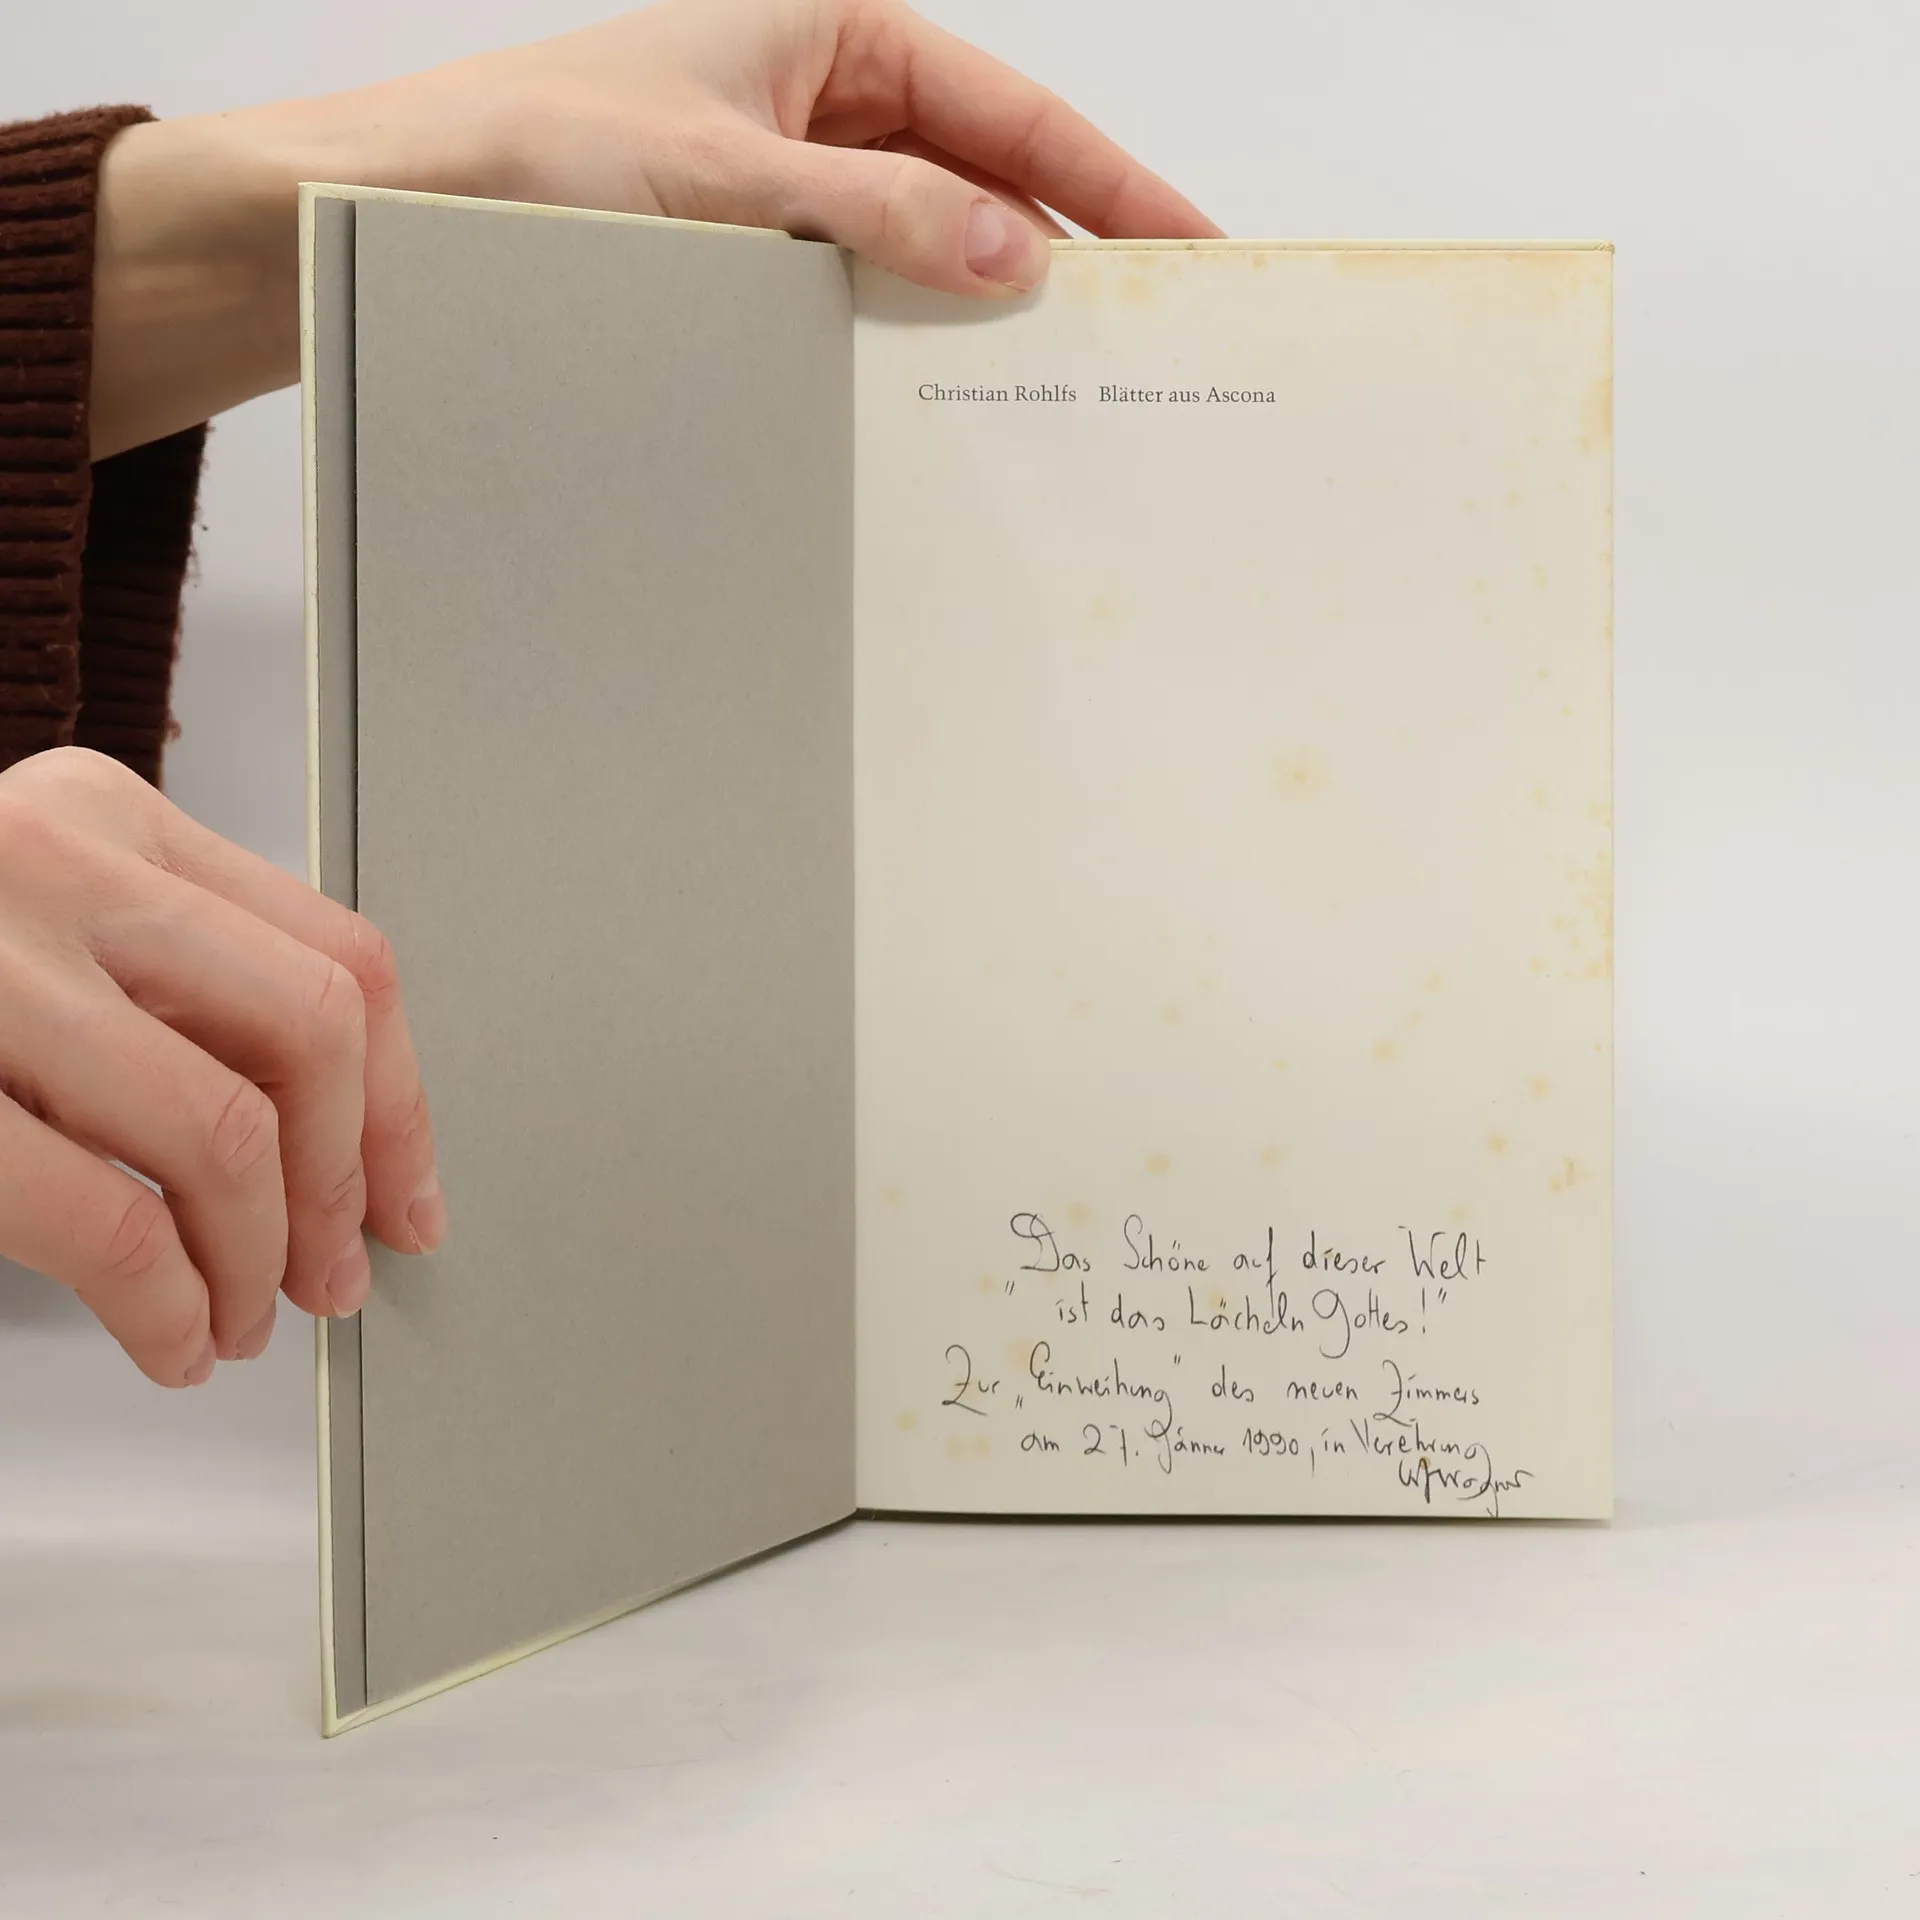 Christian Rohlfs Blätter aus Ascona
"Das Schöne auf dieser Welt
ist das Lächeln Gottes!"
Zur „Einweihung" des neuen Zimmers
am 27. Jänner 1990, in Verehrung
Wagner